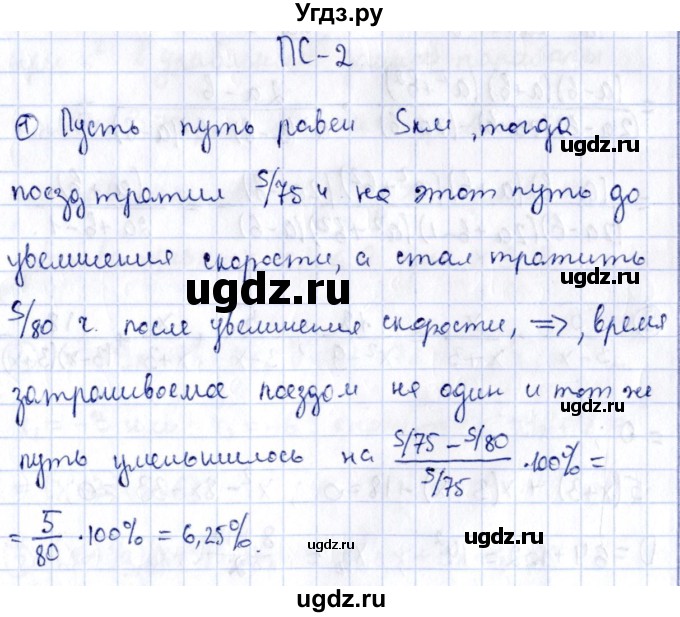 Угдз.ру
ПС-2
① Пусть путь равен Sкм, тогда
поезд тратил S/75 ч на этот путь до
увеличения скорости, а стал тратить
S/80 ч. после увеличения скорости, =>, время
затрачиваемое поездом на один и тот же
путь уменьшилось на (S/75 - S/80)/(S/75) · 100% =
= 5/80 · 100% = 6,25%.
ugdz.ru
ugdz.ru
ugdz.ru
ugdz.ru
ugdz.ru
ugdz.ru
ugdz.ru
ugdz.ru